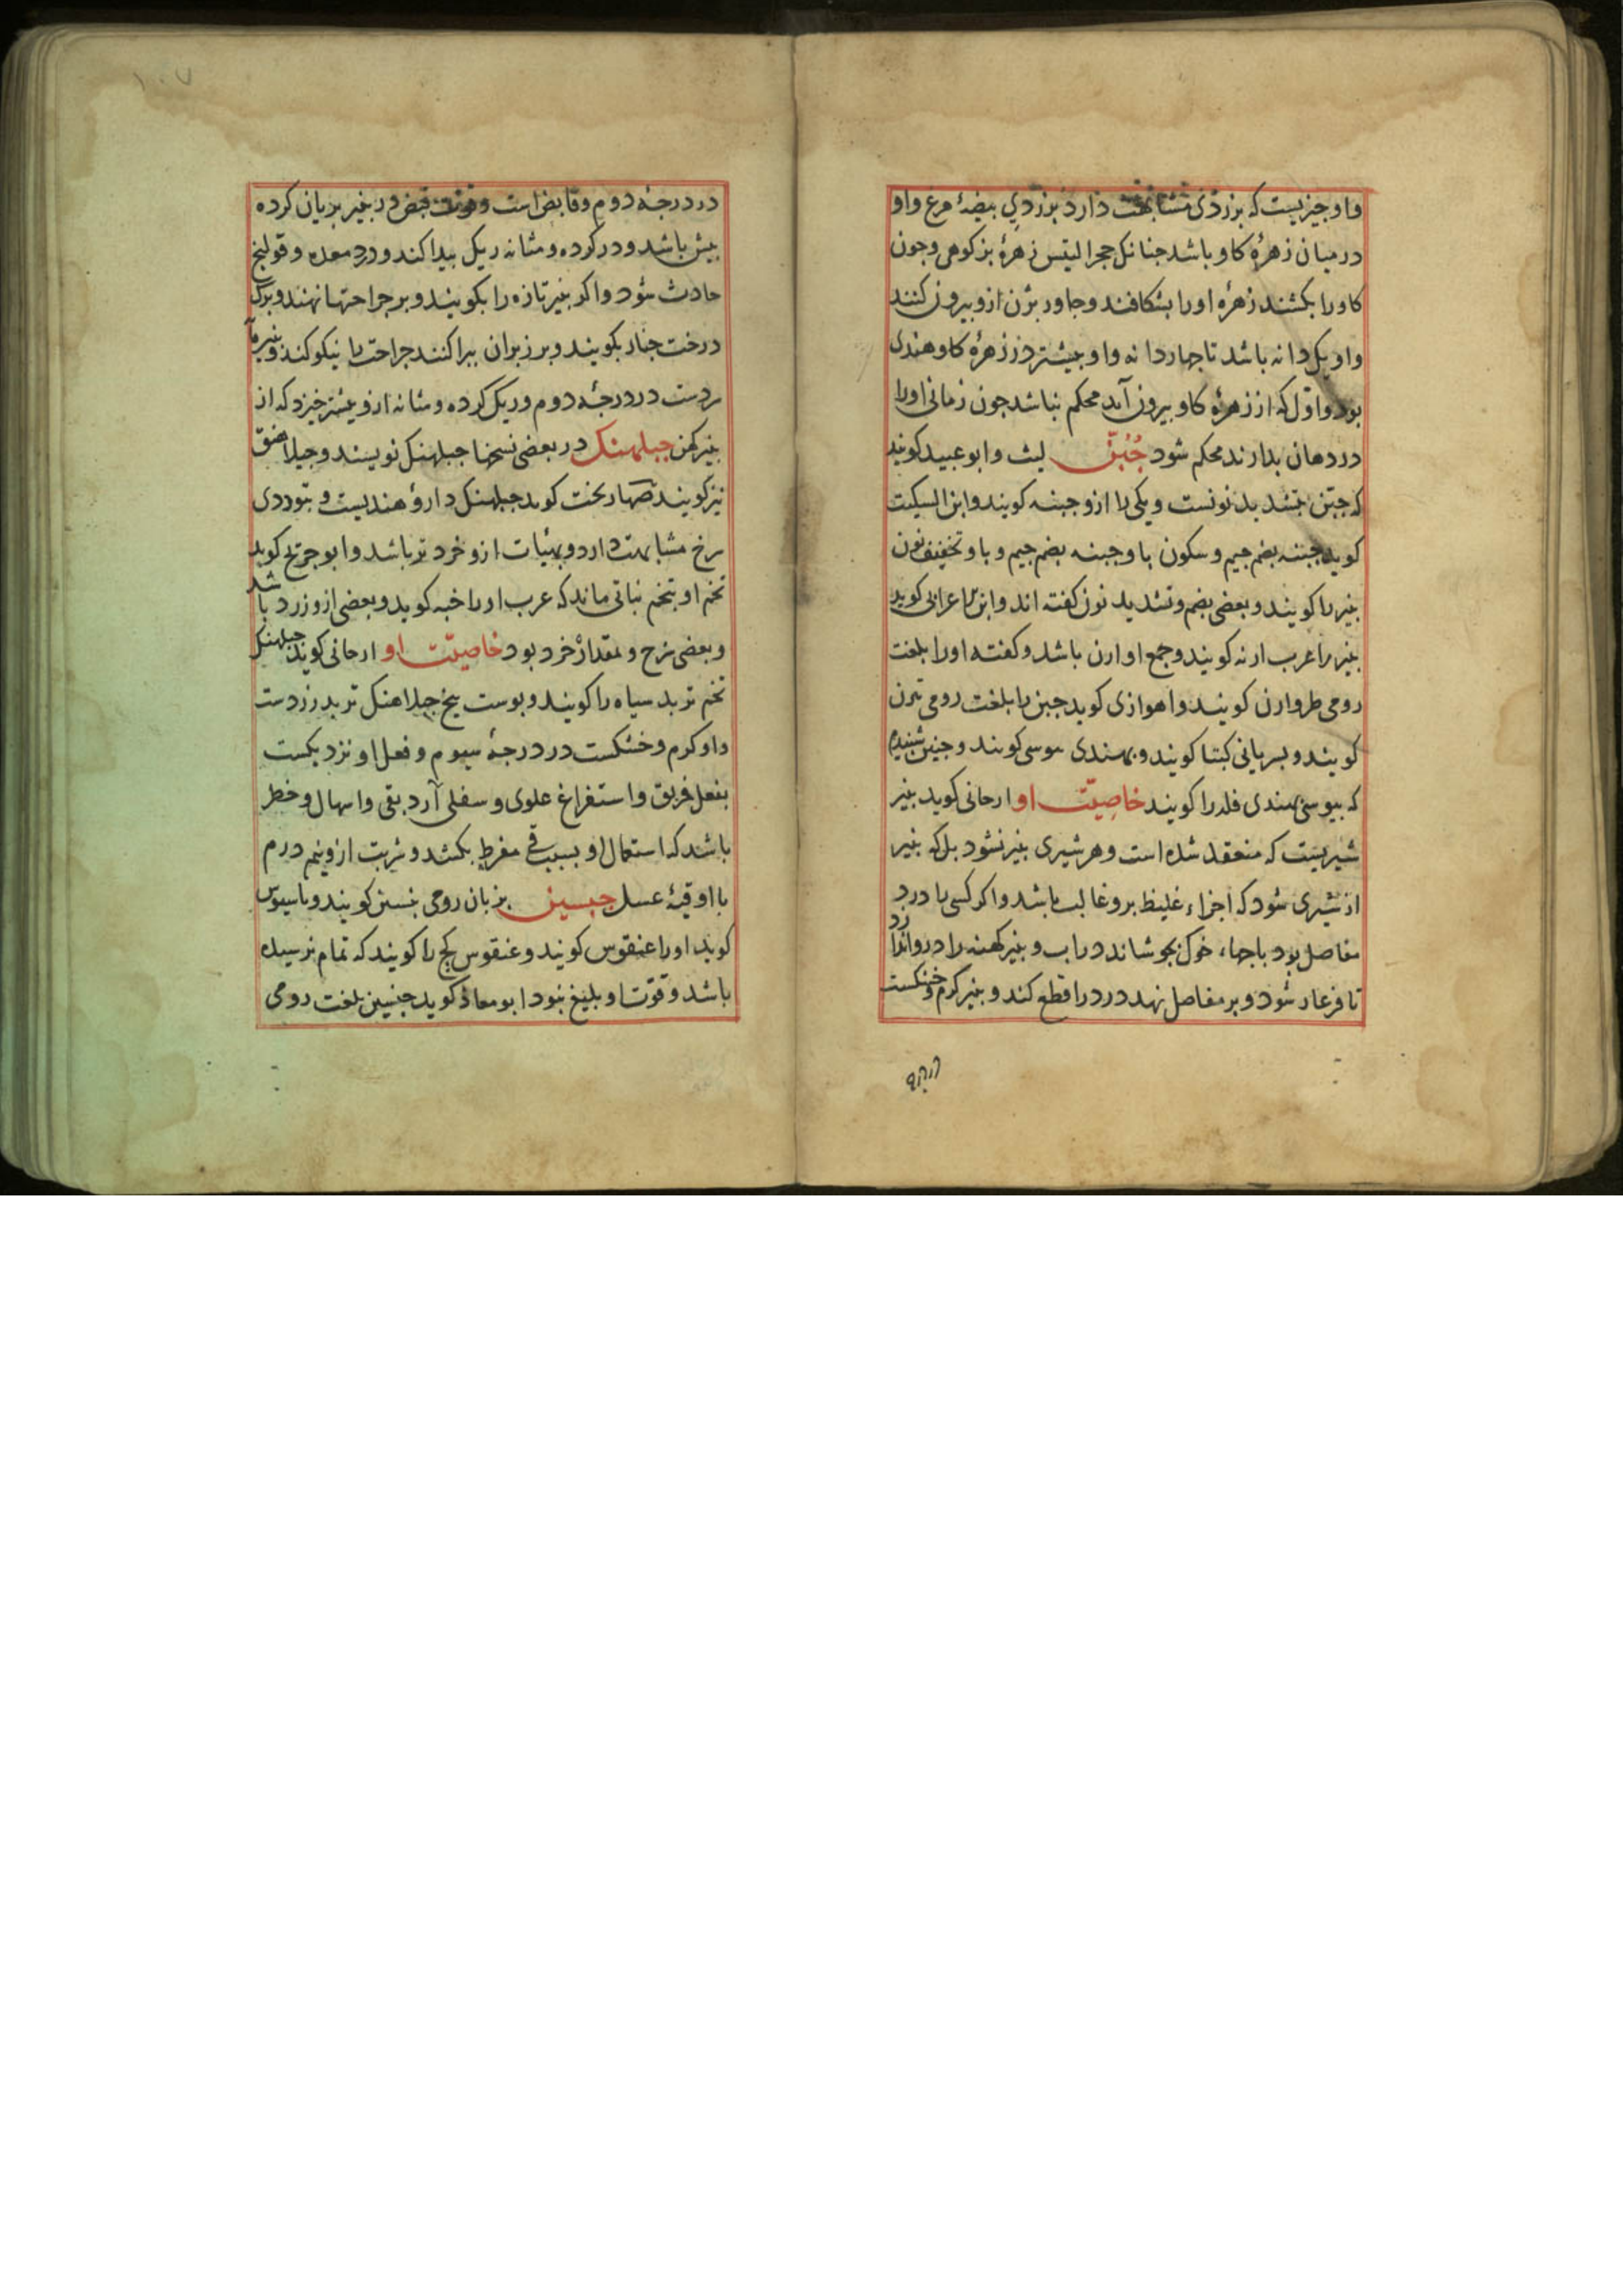 واو چیزیست که بزردی مشابهت دارد بزردی بیضهٔ مرغ واو
درمیان زهرهٔ کاو باشد جنانک حجرالتیس زهرهٔ بز کوهی وجون
کاو را بکشند زهرهٔ اورا بشکافند وجاور بزن ازو بیرون کنند
واو یک دانه باشد تا جهار دانه واو بیشتر در زهرهٔ کاو هندی
بود واوّل که از زهرهٔ کاو بیرون آید محکم نباشد جون زمانی اورا
دردهان بدارند محکم شود جُبُنّ لیث وابوعبید کویند
که جبن بتشدید نونست ویکی را ازو جبنه کویند وابن السکیت
کوید جبنه بضم جیم وسکون با وجبنه بضم جیم و با وتخفیف نون
بنیر را کویند وبعضی بضم وتشدید نون کفته اند وابن اعرابی کوید
بنیر را عرب ارنه کویند وجمع او ارن باشد وکفته اورا بلغت
رومی طروارن کویند واهوازی کوید جبن را بلغت رومی تیرن
کویند وبسریانی کبتا کویند وبهندی موسی کویند وجنین شنیدم
که بیوسی بهندی فله را کویند خاصِیّت او ارجانی کوید بنیر
شیریست که منعقد شده است وهر شیری بنیر نشود بل که بنیر
از شیری شود که اجزاء غلیظ برو غالب باشد واکر کسی را درد
مفاصل بود باجهاء خوک بجوشاند دراب و بنیر کهنه را درو اندازد
تا فرغار شود و بر مفاصل نهد درد را قطع کند و بنیر کرم وخشکست
در درجهٔ
۱۰۷
در درجهٔ دوم وقابض است وقوت قبض در بنیر بریان کرده
بیش باشد ودر کرده ومثانه ریک بیدا کند ودرد معده وقولنج
حادث شود واکر بنیر تازه را بکویند وبر جراحتها نهند وبرک
درخت جنار بکویند وبر زبران ببراکنند جراحت را نیکو کند وبنیرمآ
سردست در درجهٔ دوم وریک کرده ومثانه ازو بیشتر خیزد که از
بنیر کهن جبلهنک در بعضی نسخها جبلهنک نویسند وجبلاهنق
نیز کویند صهاربخت کوید جبلهنک دارؤ هندیست و بتودری
سرخ مشابهت دارد وبهیٔات ازو خرد تر باشد وابو جریج کوید
تخم او بتخم نباتی ماند که عرب اورا خبه کوید وبعضی ازو زرد باشد
وبعضی سرخ وبمقدار خرد بود خاصیّت او ارجانی کوید جبلهنک
تخم تربد سیاه را کویند وبوست بیخ جبلاهنک تربد زردست
واو کرم وخشکست در درجهٔ سیوم وفعل او نزدیکست
بفعل خربق واستفراغ علوی وسفلی آرد بقی واسهال وخطر
باشد که استعمال او بسبب قی مفرط بکشد وشربت ازو نیم درم
با اوقیهٔ عسل جبسین بزبان رومی کویند
کوید اورا عنقوس کویند وعنقوس کج را کویند که تمام نرسیده
باشد وقوّت او بلیغ نبود ابومعاذ کوید جبسین بلغت رومی